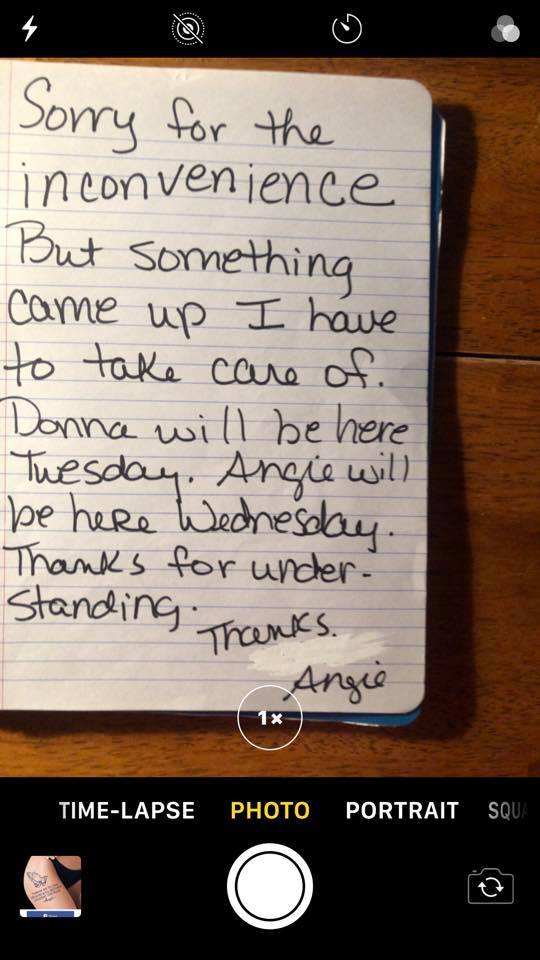 Sorry for the
inconvenience
But something
came up I have
to take care of.
Donna will be here
Tuesday. Angie will
be here Wednesday.
Thanks for under-
standing.
Thanks.
Angie
1×
TIME-LAPSE PHOTO PORTRAIT SQUA